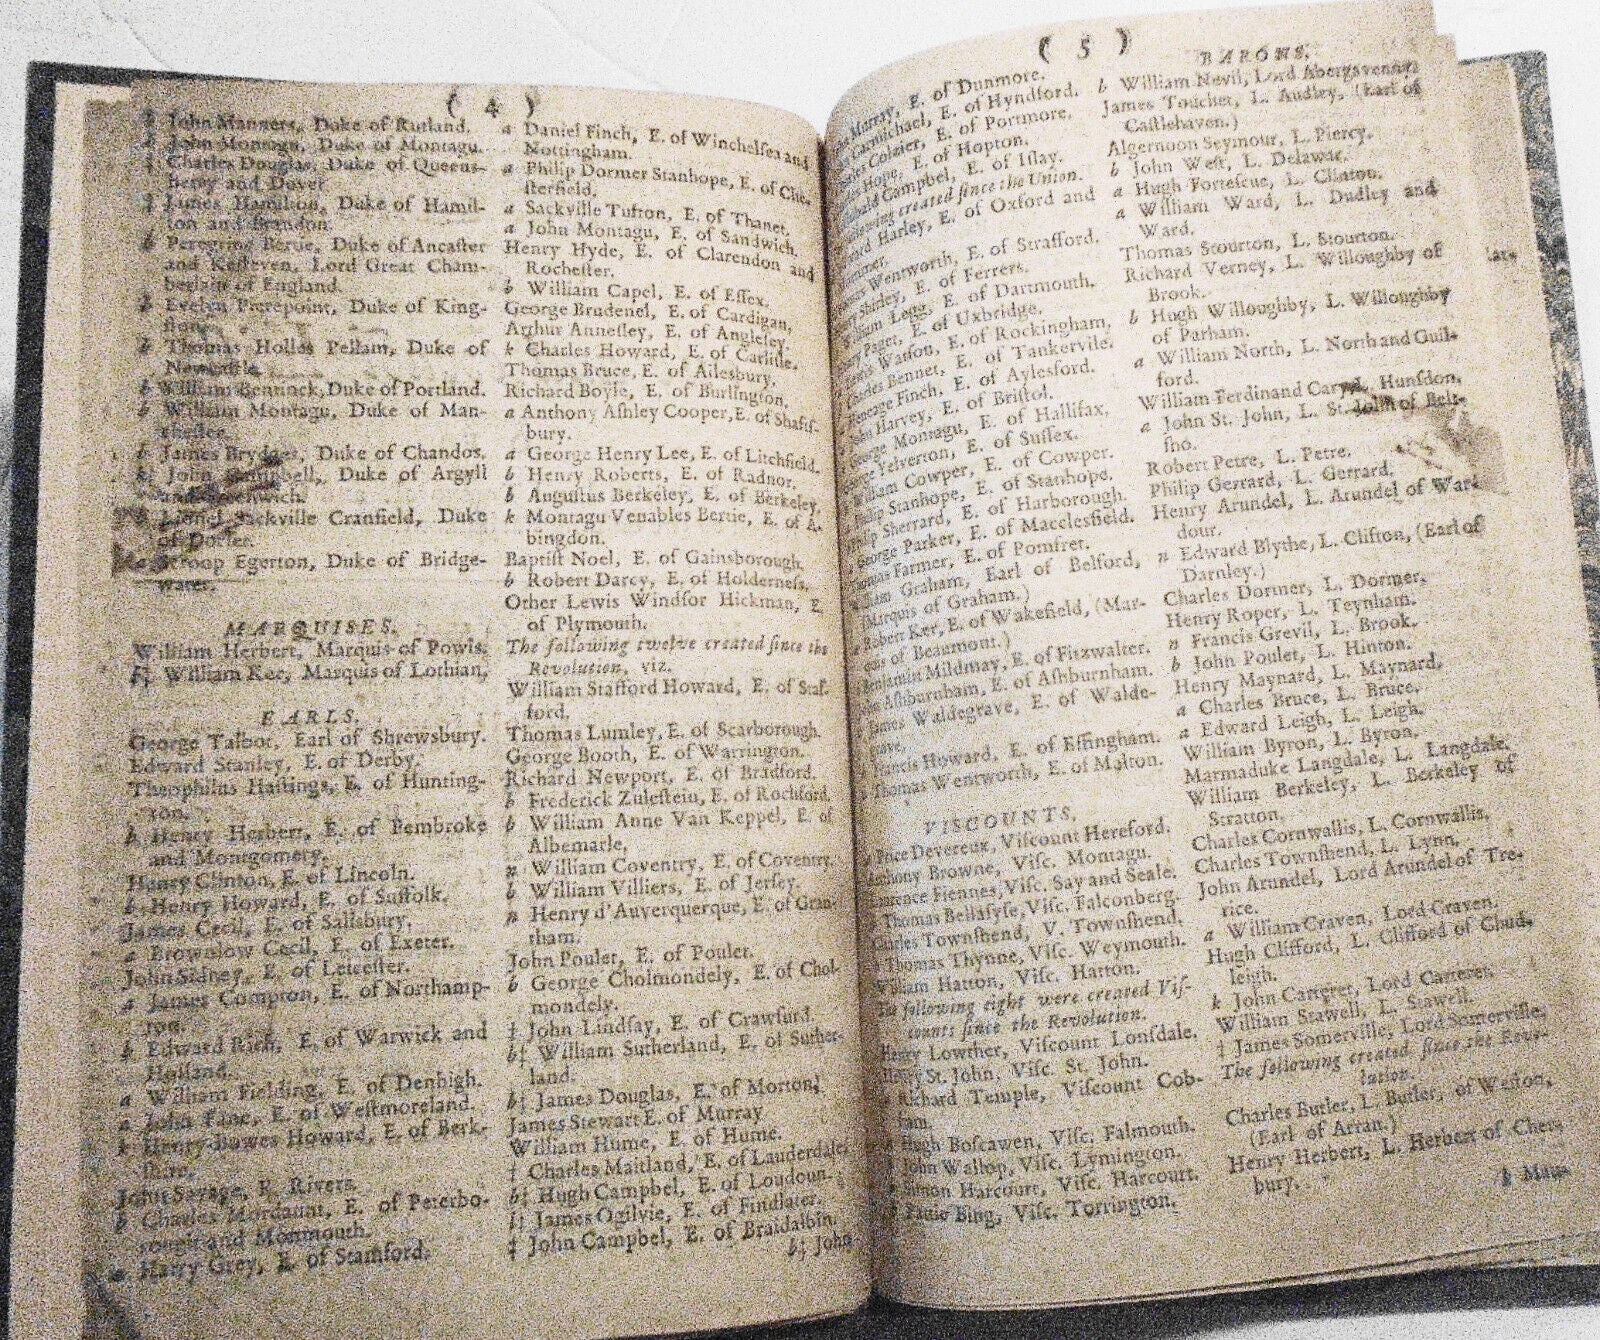 ( 4 )
John Manners, Duke of Rutland.
John Montagu, Duke of Montagu.
Charles Douglas, Duke of Queensberry and Dover
James Hamilton, Duke of Hamil-
ton and Brandon.
Peregrine Bertie, Duke of Ancaſter
and Keſteven, Lord Great Cham-
berlain of England.
Evelyn Pierepoint, Duke of King-
ſton.
Thomas Holles Pellam, Duke of
Newcaſtle.
b William Bentinck, Duke of Portland.
b William Montagu, Duke of Man-
cheſter.
b James Brydges, Duke of Chandos.
John Campbell, Duke of Argyll
and Greenwich.
Lionel Sackville Cranfield, Duke
of Dorſet.
Scroop Egerton, Duke of Bridge-
water.
MARQUISES.
William Herbert, Marquis of Powis.
William Ker, Marquis of Lothian,
EARLS.
George Talbot, Earl of Shrewsbury.
Edward Stanley, E. of Derby.
Theophilus Haſtings, E. of Hunting-
ton.
b Henry Herbert, E. of Pembroke
and Montgomery.
Henry Clinton, E. of Lincoln.
b Henry Howard, E. of Suffolk.
James Cecil, E. of Salisbury.
a Brownlow Cecil, E. of Exeter.
John Sidney, E. of Leiceſter.
a James Compton, E. of Northamp-
ton.
b Edward Rich, E. of Warwick and
Holland.
a William Fielding, E. of Denbigh.
a John Fane, E. of Weſtmoreland.
k Henry Bowes Howard, E. of Berk-
ſhire.
John Savage, E. Rivers.
b Charles Mordaunt, E. of Peterbo-
rough and Monmouth.
a Harry Grey, E. of Stamford.
a Daniel Finch, E. of Winchelſea and
Nottingham.
a Philip Dormer Stanhope, E. of Che-
ſterfield.
a Sackville Tufton, E. of Thanet.
a John Montagu, E. of Sandwich.
Henry Hyde, E. of Clarendon and
Rocheſter.
b William Capel, E. of Eſſex.
George Brudenel, E. of Cardigan,
Arthur Anneſley, E. of Angleſey.
k Charles Howard, E. of Carliſle.
Thomas Bruce, E. of Ailesbury.
Richard Boyle, E. of Burlington,
a Anthony Aſhley Cooper, E. of Shaftſ-
bury.
a George Henry Lee, E. of Litchfield.
b Henry Roberts, E. of Radnor.
b Auguſtus Berkeley, E. of Berkeley.
k Montagu Venables Bertie, E. of A-
bingdon.
Baptiſt Noel, E. of Gainsborough.
b Robert Darcy, E. of Holderneſs.
Other Lewis Windſor Hickman, E.
of Plymouth.
The following twelve created ſince the
Revolution, viz.
William Stafford Howard, E. of Staf-
ford.
Thomas Lumley, E. of Scarborough.
George Booth, E. of Warrington.
Richard Newport, E. of Bradford.
b Frederick Zuleſtein, E. of Rochford.
b William Anne Van Keppel, E. of
Albemarle,
n William Coventry, E. of Coventry.
b William Villiers, E. of Jerſey.
n Henry d'Auverquerque, E. of Gran-
tham.
John Poulet, E. of Poulet.
b George Cholmondely, E. of Chol-
mondely.
‡ John Lindſay, E. of Crawfurd.
b‡ William Sutherland, E. of Suther-
land.
b‡ James Douglas, E. of Morton.
James Stewart E. of Murray
William Hume, E. of Hume.
† Charles Maitland, E. of Lauderdale.
b‡ Hugh Campbel, E. of Loudoun.
James Ogilvie, E. of Findlater.
‡ John Campbel, E. of Braidalbin.
b‡ John
( 5 )
Murray, E. of Dunmore.
Carmichael, E. of Hyndford.
Colzier, E. of Portmore.
Hope, E. of Hopton.
Campbel, E. of Iſlay.
following created ſince the Union.
Harley, E. of Oxford and
Mortimer.
Wentworth, E. of Strafford.
Shirley, E. of Ferrers.
William Legg, E. of Dartmouth.
Paget, E. of Uxbridge.
Watſon, E. of Rockingham,
Charles Bennet, E. of Tankervile.
Heneage Finch, E. of Aylesford.
John Harvey, E. of Briſtol.
George Montagu, E. of Hallifax,
Yelverton, E. of Suſſex.
William Cowper, E. of Cowper.
Philip Stanhope, E. of Stanhope.
Philip Sherrard, E. of Harborough.
George Parker, E. of Macclesfield.
Thomas Farmer, E. of Pomfret.
William Graham, Earl of Belford,
(Marquis of Graham.)
Robert Ker, E. of Wakefield, (Mar-
quis of Beaumont.)
Benjamin Mildmay, E. of Fitzwalter.
John Aſhburnham, E. of Aſhburnham.
James Waldegrave, E. of Walde-
grave.
Francis Howard, E. of Effingham.
Thomas Wentworth, E. of Malton.
VISCOUNTS.
Price Devereux, Viſcount Hereford.
Anthony Browne, Viſc. Montagu.
Laurence Fiennes, Viſc. Say and Seale.
Thomas Bellaſyſe, Viſc. Falconberg.
Charles Townſhend, V. Townſhend.
Thomas Thynne, Viſc. Weymouth.
William Hatton, Viſc. Hatton.
The following eight were created Viſ-
counts ſince the Revolution.
Henry Lowther, Viſcount Lonſdale.
Henry St. John, Viſc. St. John.
Richard Temple, Viſcount Cob-
ham.
Hugh Boſcawen, Viſc. Falmouth.
John Wallop, Viſc. Lymington.
Simon Harcourt, Viſc. Harcourt.
Pattie Bing, Viſc. Torrington.
BARONS.
b William Nevil, Lord Abergavenny,
James Touchet, L. Audley, (Earl of
Caſtlehaven.)
Algernoon Seymour, L. Piercy.
b John Weſt, L. Delawar.
a Hugh Forteſcue, L. Clinton.
a William Ward, L. Dudley and
Ward.
Thomas Stourton, L. Stourton.
Richard Verney, L. Willoughby of
Brook.
b Hugh Willoughby, L. Willoughby
of Parham.
a William North, L. North and Guil-
ford.
William Ferdinand Cary, L. Hunſdon.
a John St. John, L. St. John of Belt-
ſho.
Robert Petre, L. Petre.
Philip Gerrard, L. Gerrard.
Henry Arundel, L. Arundel of War-
dour.
n Edward Blythe, L. Clifton, (Earl of
Darnley.)
Charles Dormer, L. Dormer,
Henry Roper, L. Teynham.
n Francis Grevil, L. Brook.
b John Poulet, L. Hinton.
Henry Maynard, L. Maynard,
a Charles Bruce, L. Bruce.
a Edward Leigh, L. Leigh.
William Byron, L. Byron.
Marmaduke Langdale, L. Langdale.
William Berkeley, L. Berkeley of
Stratton.
Charles Cornwallis, L. Cornwallis,
Charles Townſhend, L. Lynn.
John Arundel, Lord Arundel of Tre-
rice.
a William Craven, Lord Craven.
Hugh Clifford, L. Clifford of Chud-
leigh.
k John Carteret, Lord Carteret.
William Stawell, L. Stawell.
‡ James Somerville, Lord Somerville.
The following created ſince the Revo-
lution.
Charles Butler, L. Butler, of Weſton,
(Earl of Arran.)
Henry Herbert, L. Herbert of Cher-
bury.
k Mau-